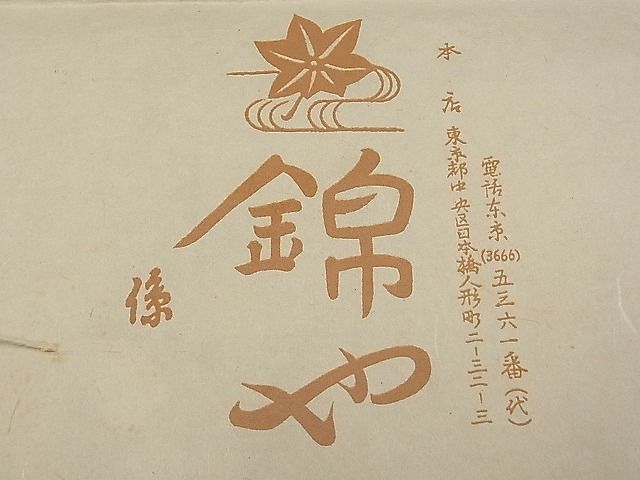 本店 東京都中央区日本橋人形町二ー三三ー三
電話东京(3666)五三六一番(代)
錦や
係